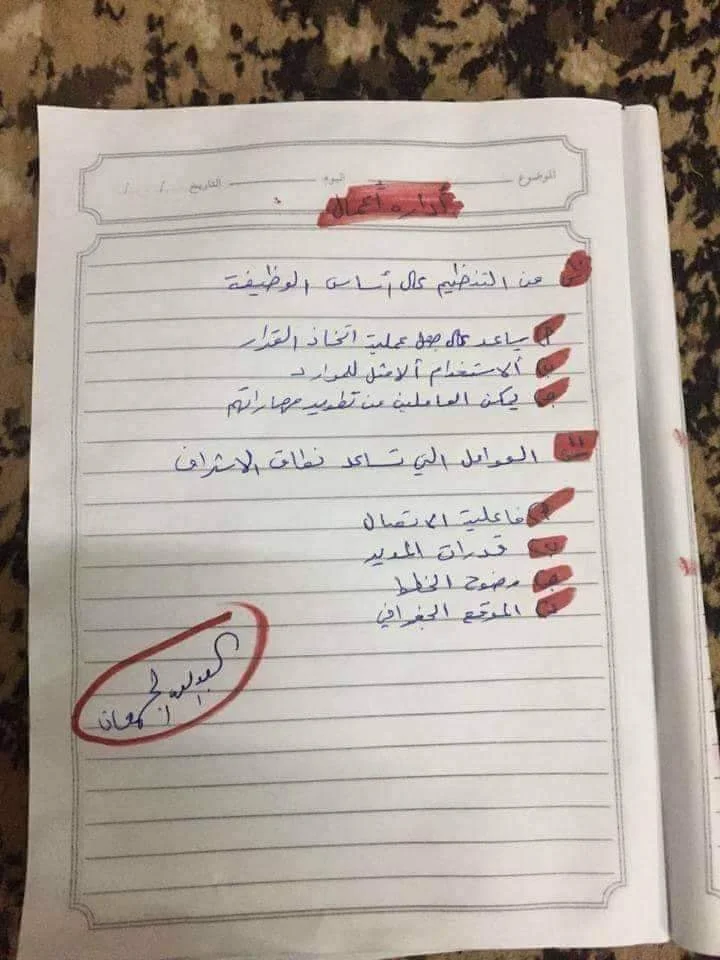 الموضوع اليوم التاريخ / /
أداره أعمال
١٠ من التنظيم على أساس الوظيفة
أ يساعد على جعل عملية اتخاذ القرار
ب ألاستخدام ألامثل للموارد
ج يمكن العاملين من تطوير مهاراتهم
١١ العوامل التي تساعد نطاق الاشراف
أ فاعلية الاتصال
ب قدرات المدير
ج وضوح الخطط
د الموقع الجغرافي